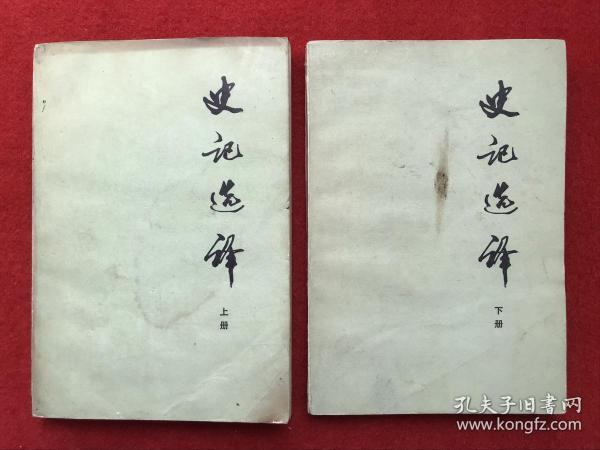 史记选译
上册
史记选译
下册
孔夫子旧书网
www.kongfz.com